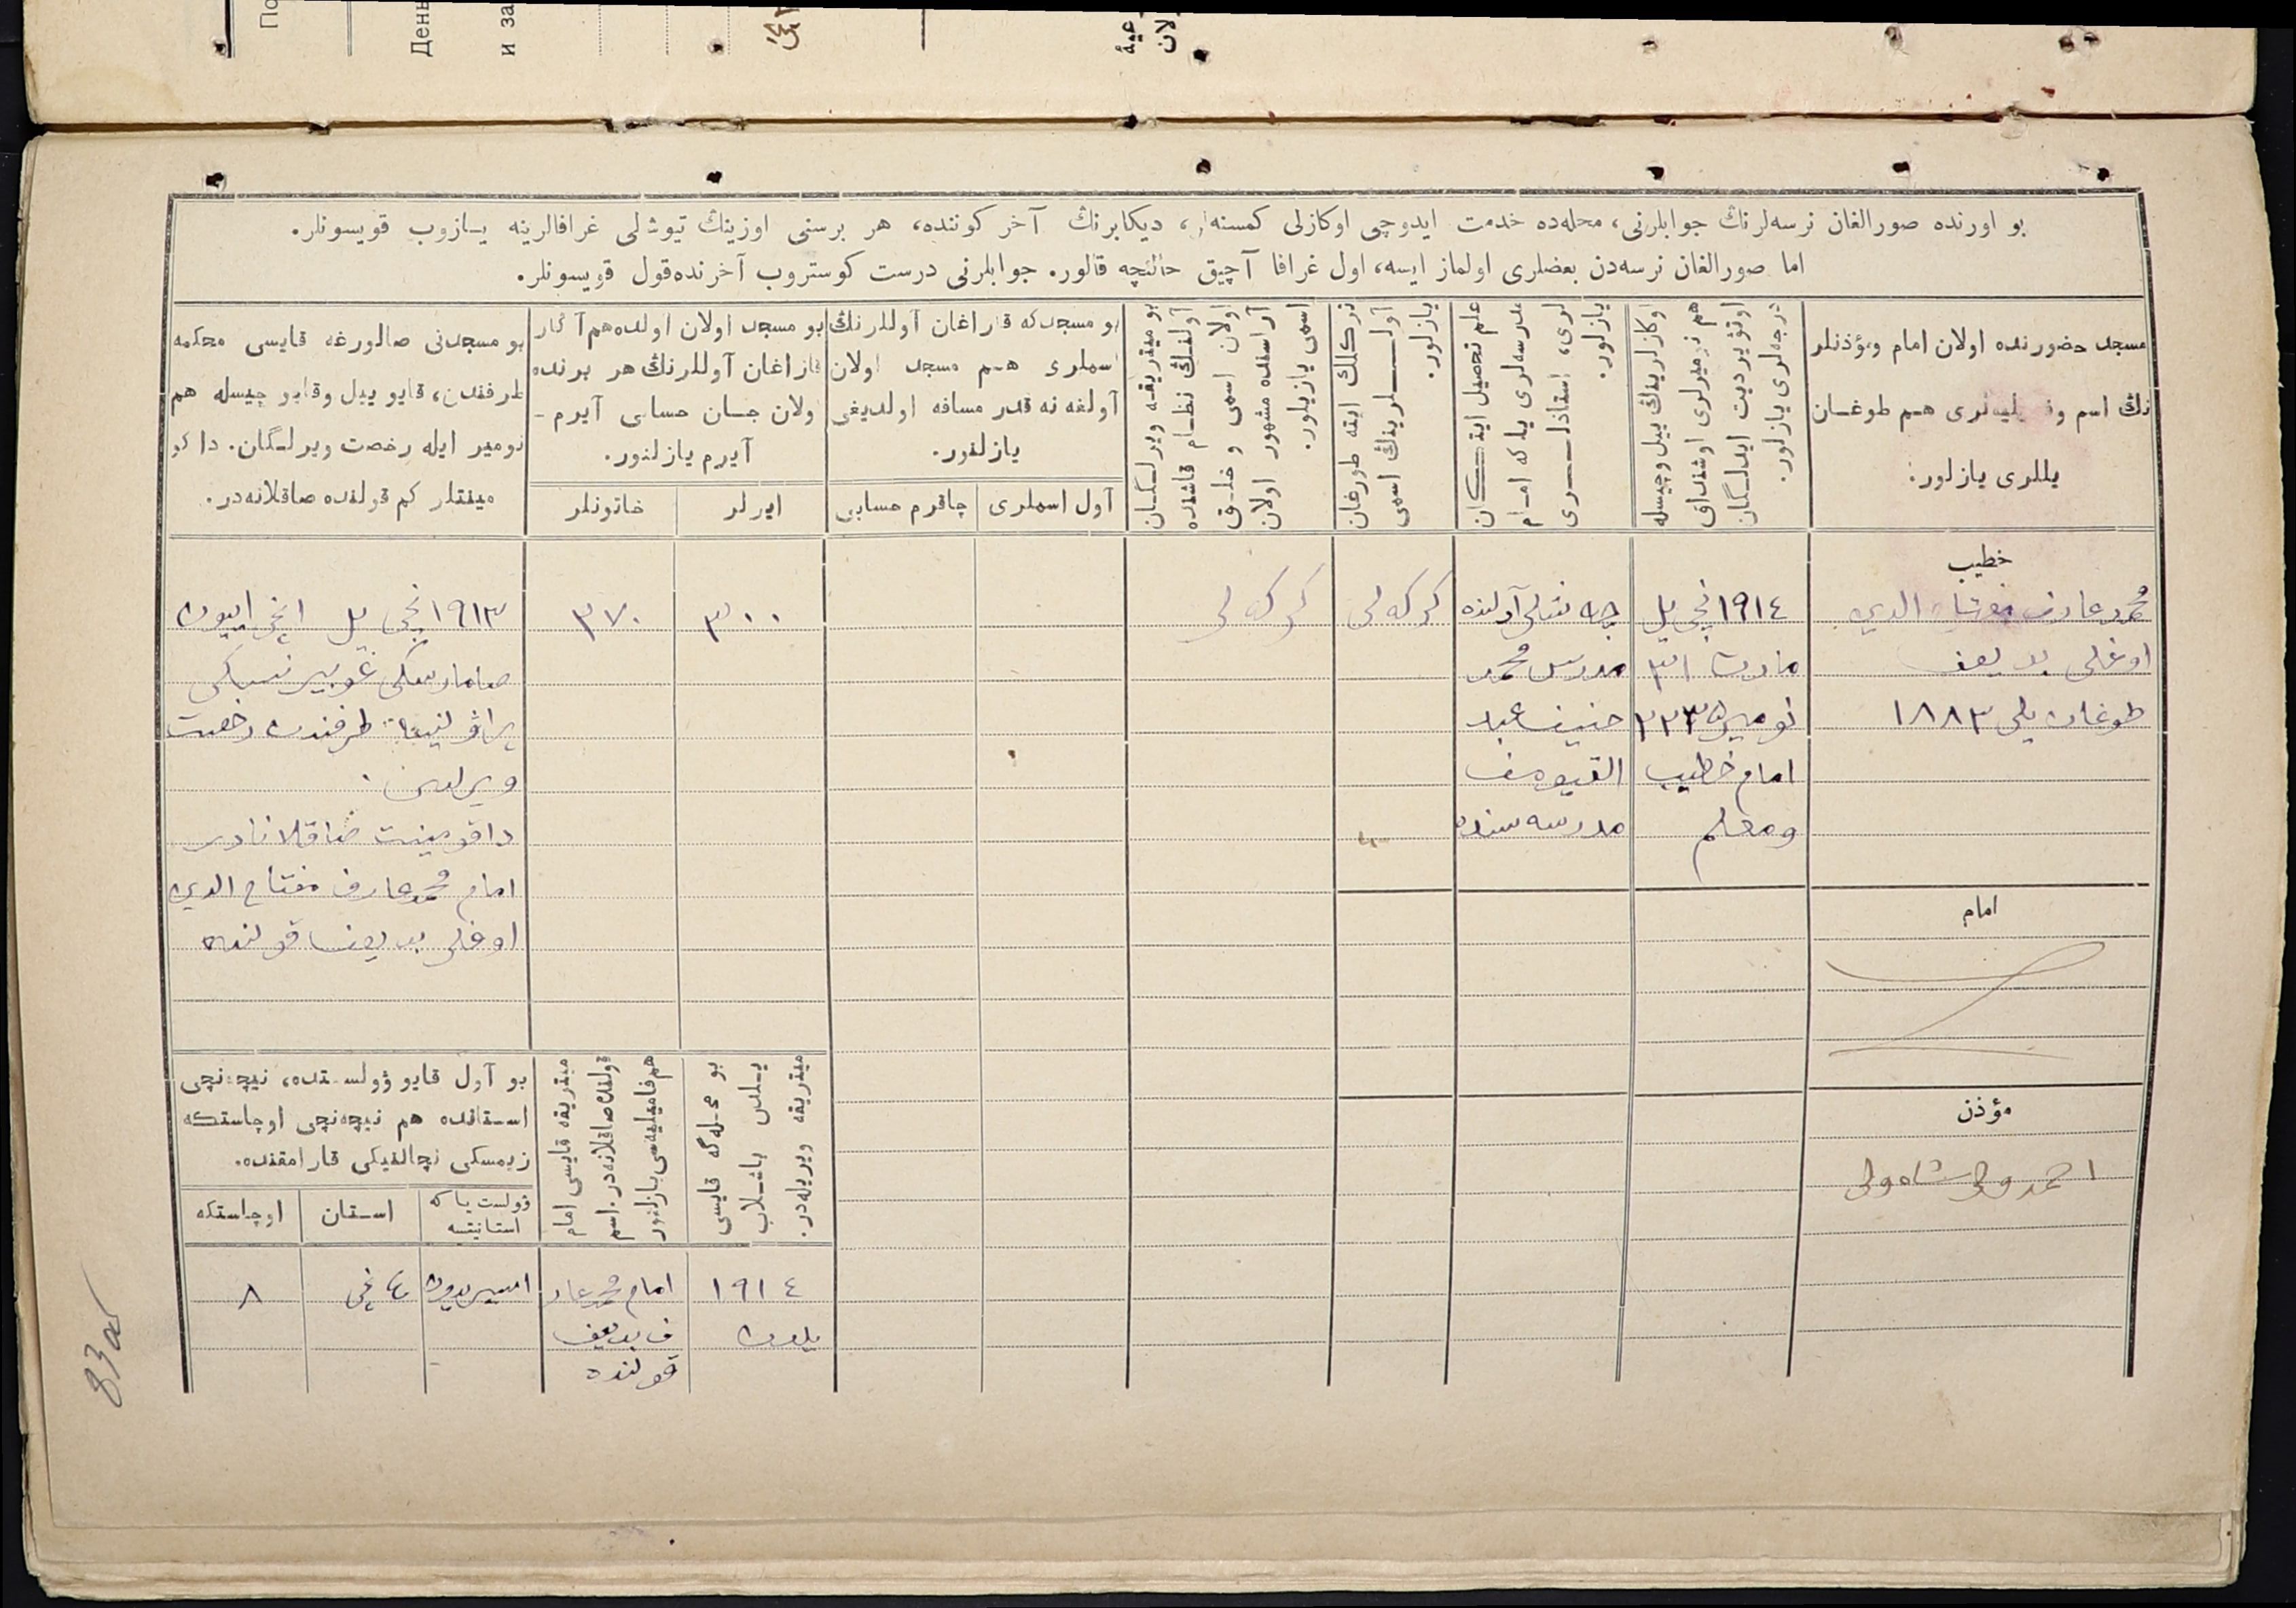 По
День
и за
عية
لان
بو اورنده صورالغان نرسه‌لرنڭ جوابلرنی، محله‌ده خدمت ایدوچی اوکازلی کمسنه‌لر، دیکابرنڭ آخر کوننده، هر برسنی اوزینڭ تیوشلی غرافالرینه یازوب قویسونلر.
اما صورالغان نرسه‌دن بعضلری اولماز ایسه، اول غرافا آچیق حالنچه قالور. جوابلرنی درست کوستروب آخرنده قول قویسونلر.
مسجد حضورنده اولان امام ومؤذنلر
نڭ اسم وفامیلیه‌لری هم طوغان
یللری یازلور.
اوکازلرینڭ ییل وچیسله
هم نومیرلری اوشنداق
اوتویردیت ایدلگان
درجه‌لری یازلور.
علم تحصیل ایتکان
مدرسه‌لری یا که امام
لری، استاذلری
یازلور.
ترکلک ایته طورغان
آوللرینڭ اسمی
یازلور.
بو میتریقه ویرلگان
آولنڭ نظام قاشنده
اولان اسمی و خلق
آراسنده مشهور اولان
اسمی یازیلور.
بو مسجدکه قاراغان آوللرنڭ
اسملری هم مسجد اولان
آولغه نه قدر مسافه اولدیغی
یازلنور.
آول اسملری
چاقرم حسابی
بو مسجد اولان اولده هم آڭار
قاراغان آوللرنڭ هر برنده
اولان جان حسابی آیرم -
آیرم یازلنور.
ایرلر
خاتونلر
بو مسجدنی صالورغه قایسی محکمه
طرفندن، قایو ییل وقایو چیسله هم
نومیر ایله رخصت ویرلگان. داکو
مینتلر کم قولنده صاقلانه‌در.
خطیب
محمد عارف مفتاح الدین
اوغلی بدیعف
طوغان یلی ۱۸۸۳
۱۹۱٤ نچی یل
مارت ۳۱
نومیر ۲۲۳۵
امام خطیب
ومعلم
آولنده
مدرس محمد
حنیف عبد
القیومف
مدرسه سنده
کرکه‌لی
کرکه‌لی
۳۰۰
۳۷۰
۱۹۱۳ نچی یل
صامارسکی غوبیرنسکی
پراولنیه طرفندن رخصت
ویرلگن.
داقومینت صاقلانادر
امام محمد عارف مفتاح الدین
اوغلی بدیعف قولنده
امام
مؤذن
احمدولی شاه ولی
بو محله‌گه قایسی
یلدن باشلاب
میتریقه ویریله‌در.
میتریقه قایسی امام
قولنده صاقلانه‌در. اسم
هم فامیلیه‌سی یازلنور
بو آول قایو وولستده، نیچه‌نچی
استانده هم نیچه‌نچی اوچاستکه
زیمسکی نچالنیکی قارامقنده.
وولست یا که
استانیتسه
استان
اوچاستکه
۱۹۱٤
یلدن
امام محمد عار
ف بدیعف
قولنده
٤ نچی
۸
83об